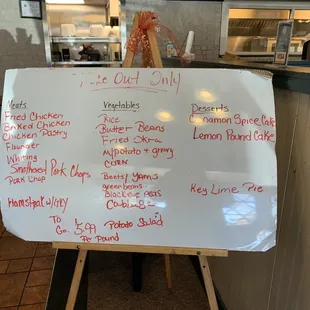 Out Only
Meats
Fried Chicken
Baked Chicken
Chicken Pastry
Flounder
Whiting
Smothered Pork Chops
Pork Chop
Vegetables
Rice
Butter Beans
Fried Okra
m/potato + gravy
corn
Beets/Yams
green beans
Blackeye Peas
Cabbage
Potato Salad
Desserts
Cinnamon Spice Cake
Lemon Pound Cake
Key Lime Pie
To
Go 5.99
Per Pound